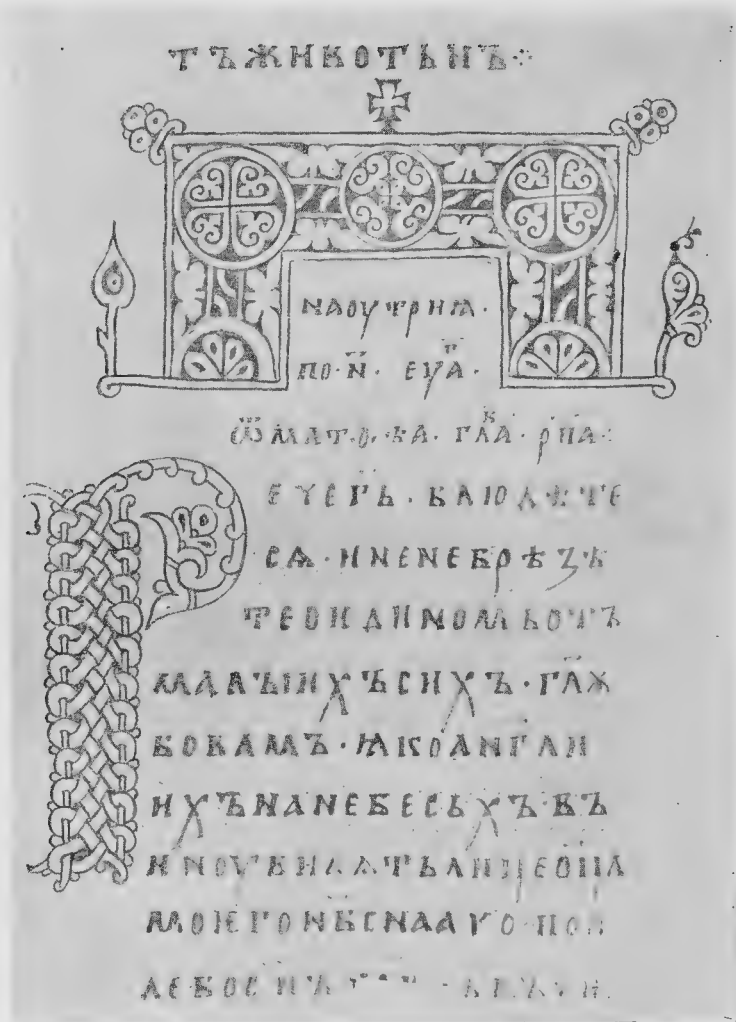 ТЪЖИВОТЬНЪ⁘
НАОУТРИꙖ·
ПО·Н҃· ЕУА҃·
Ѿ МАТ·Ѳ·КА· ГЛА· РПА:
РЕЧЕГЬ·БЛЮДѢТЕ
СѦ·ИНЕНЕБРѢЗѢ
ТЕОИДИНОМЬОТЪ
МАЛЪІИХЪСИХЪ·ГЛѬ
БОВАМЪ·ꙖКОАНГЛИ
ИХЪНАНЕБЕСЬХЪ·ВЪ
ИНОУВИДѦТЬЛИЦЕОЦА
МОѤГОНБСНААГО·ПОИ
ДЕБОСНЪ